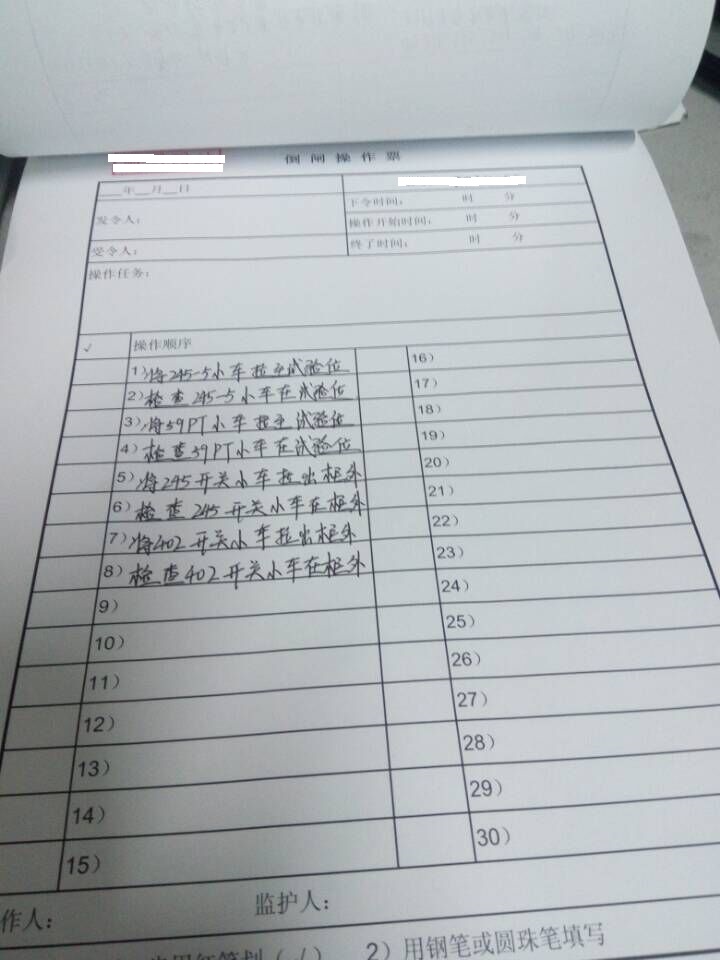 倒闸操作票
__年__月__日
发令人：
下令时间： 时 分
操作开始时间： 时 分
受令人：
终了时间： 时 分
操作任务：
√ 操作顺序
1）将245-5小车拉至试验位
2）检查245-5小车在试验位
3）将59PT小车拉至试验位
4）检查59PT小车在试验位
5）将245开关小车拉出柜外
6）检查245开关小车在柜外
7）将402开关小车拉出柜外
8）检查402开关小车在柜外
9）
10）
11）
12）
13）
14）
15）
16）
17）
18）
19）
20）
21）
22）
23）
24）
25）
26）
27）
28）
29）
30）
作人： 监护人：
用红笔划（√） 2）用钢笔或圆珠笔填写